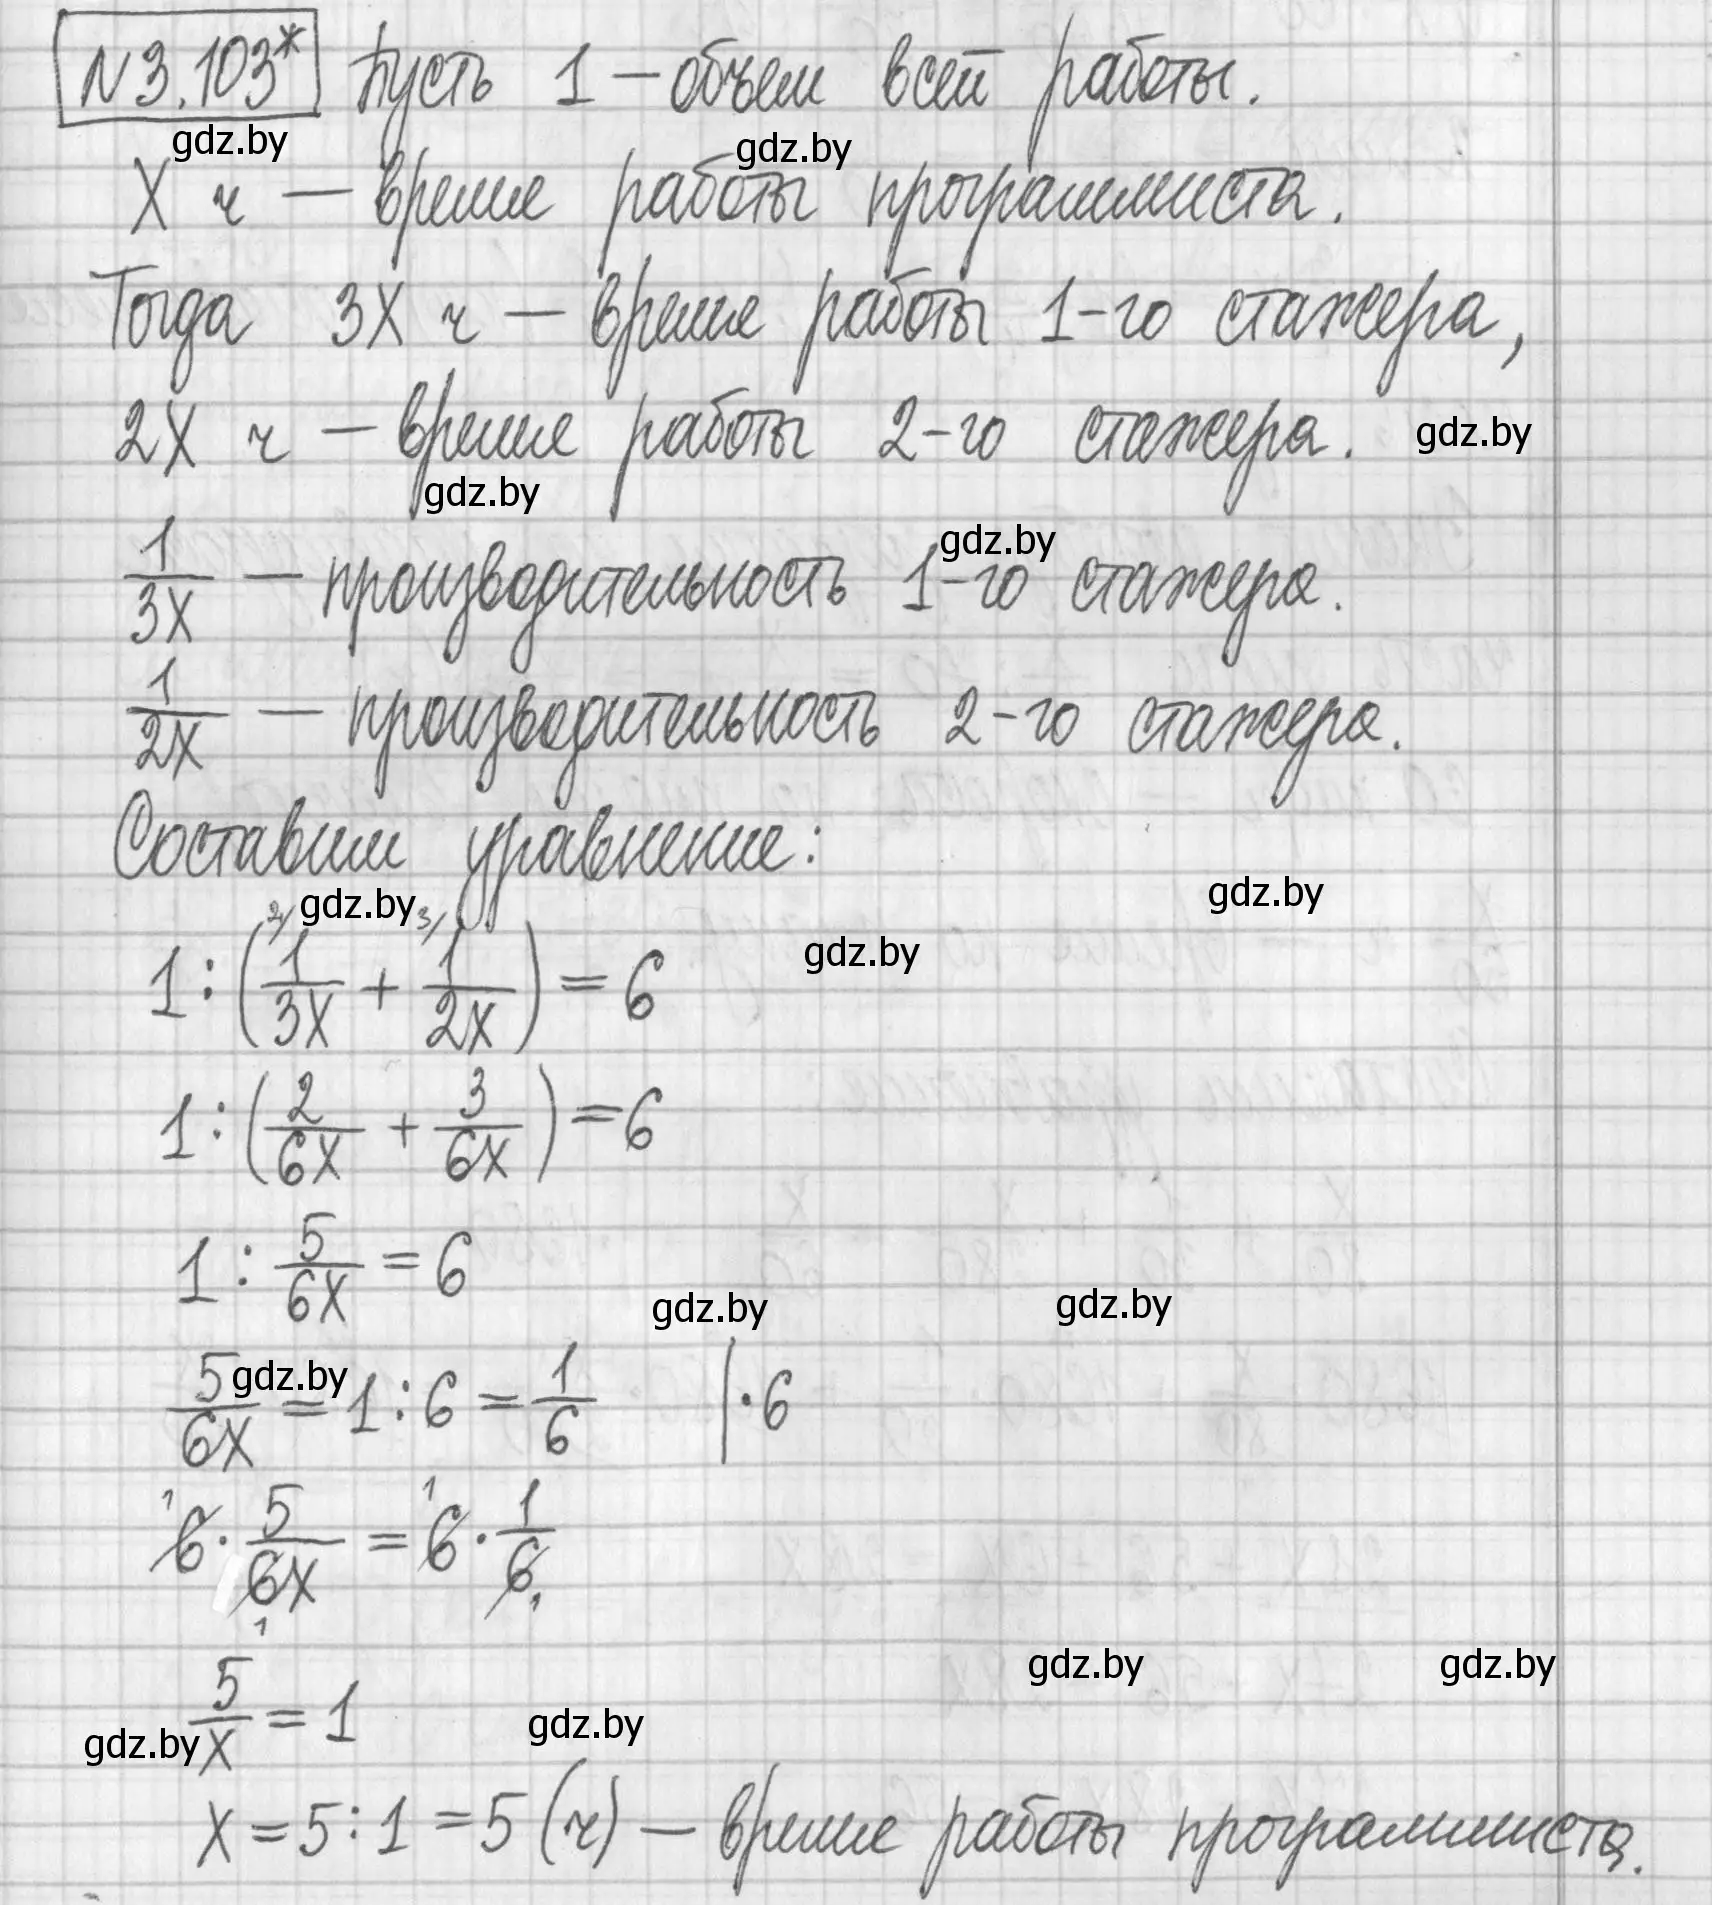 N3.103* Пусть 1 – объем всей работы.
gdz.by gdz.by
X ч – время работы программиста.
Тогда 3X ч – время работы 1-го стажера,
2X ч – время работы 2-го стажера. gdz.by
gdz.by
gdz.by
1/3X – производительность 1-го стажера.
1/2X – производительность 2-го стажера.
Составим уравнение:
gdz.by gdz.by
gdz.by
1 : (²⁾1/3X + ³⁾1/2X) = 6
1 : (2/6X + 3/6X) = 6
1 : 5/6X = 6
gdz.by gdz.by
gdz.by
5/6X = 1 : 6 = 1/6 | · 6
¹6 · 5/6X₁ = ¹6 · 1/6₁
gdz.by gdz.by
5/X = 1
gdz.by gdz.by
X = 5 : 1 = 5 (ч) – время работы программиста.